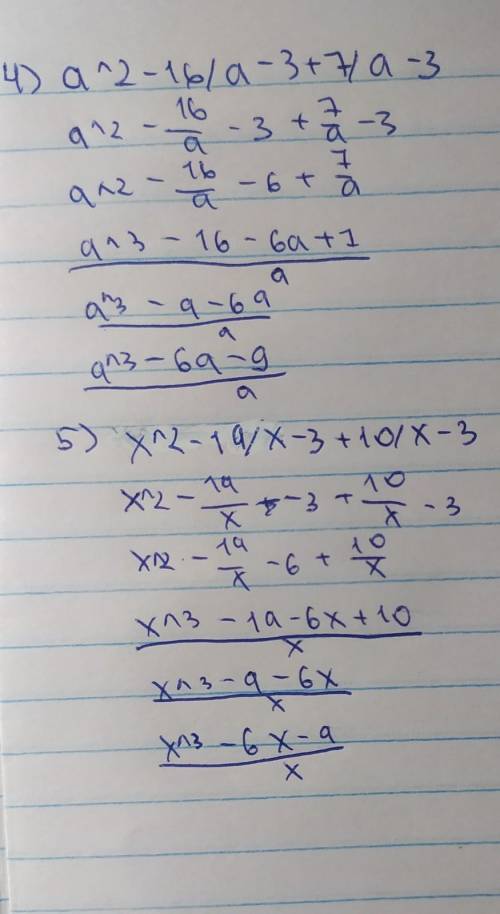 4) a^2-16/a-3+7/a-3
a^2 - 16/a - 3 + 7/a - 3
a^2 - 16/a - 6 + 7/a
a^3 - 16 - 6a + 7/a
a^3 - 9 - 6a/a
a^3 - 6a - 9/a
5) x^2-19/x-3+10/x-3
x^2 - 19/x - 3 + 10/x - 3
x^2 - 19/x - 6 + 10/x
x^3 - 19 - 6x + 10/x
x^3 - 9 - 6x/x
x^3 - 6x - 9/x